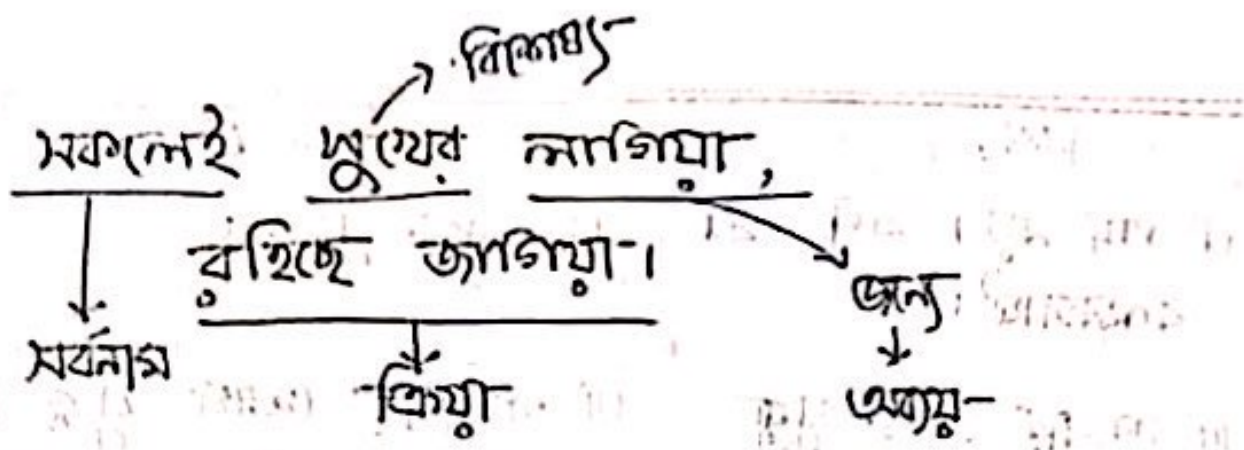 বিশেষ্য
সকলেই সুখের লাগিয়া,
রহিছে জাগিয়া।
জন্য
সর্বনাম
ক্রিয়া
অব্যয়